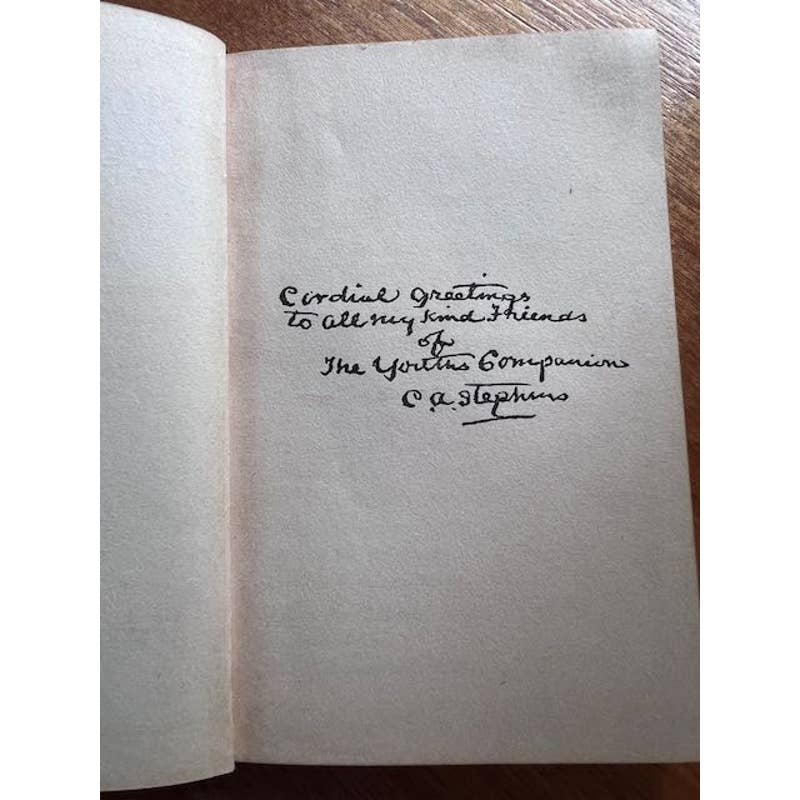 Cordial Greetings
to all my Kind Friends
of
The Youths Companion
C. A. Stephens